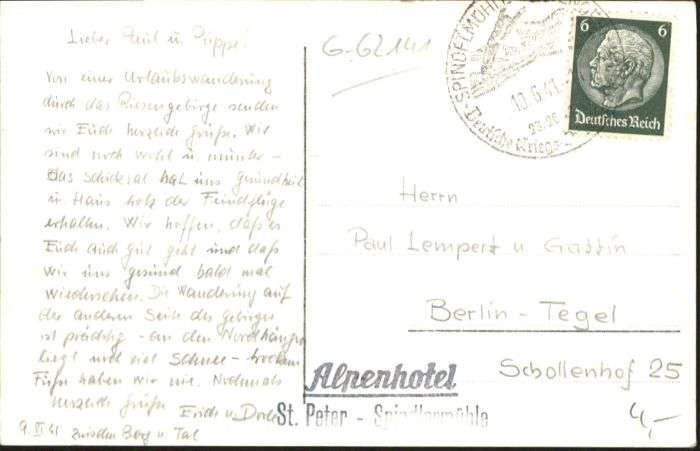 Lieber Paul u. Puppe!
Von einer Urlaubswanderung
durch das Riesengebirge senden
wir Euch herzliche Grüße. Wir
sind noch wohl u munter -
das Schicksal hat uns Gesundheit
u Haus trotz der Feindflüge
erhalten. Wir hoffen, daß es
Euch auch gut geht und daß
wir uns gesund bald mal
wiedersehen. Die Wanderung auf
der anderen Seite des Gebirges
ist prächtig - an den Nordhängen
liegt noch viel Schnee - trockene
Füße haben wir nie. Nochmals
herzliche Grüße Erich u Dora
9. VI 41 zwischen Berg u Tal
G-62141
SPINDELMÜHLE
10.6.41
Deutsche Kriegs
6 6
Deutsches Reich
Herrn
Paul Lempert u. Gattin
Berlin-Tegel
Schollenhof 25
4,-
Alpenhotel
St. Peter - Spindlermühle